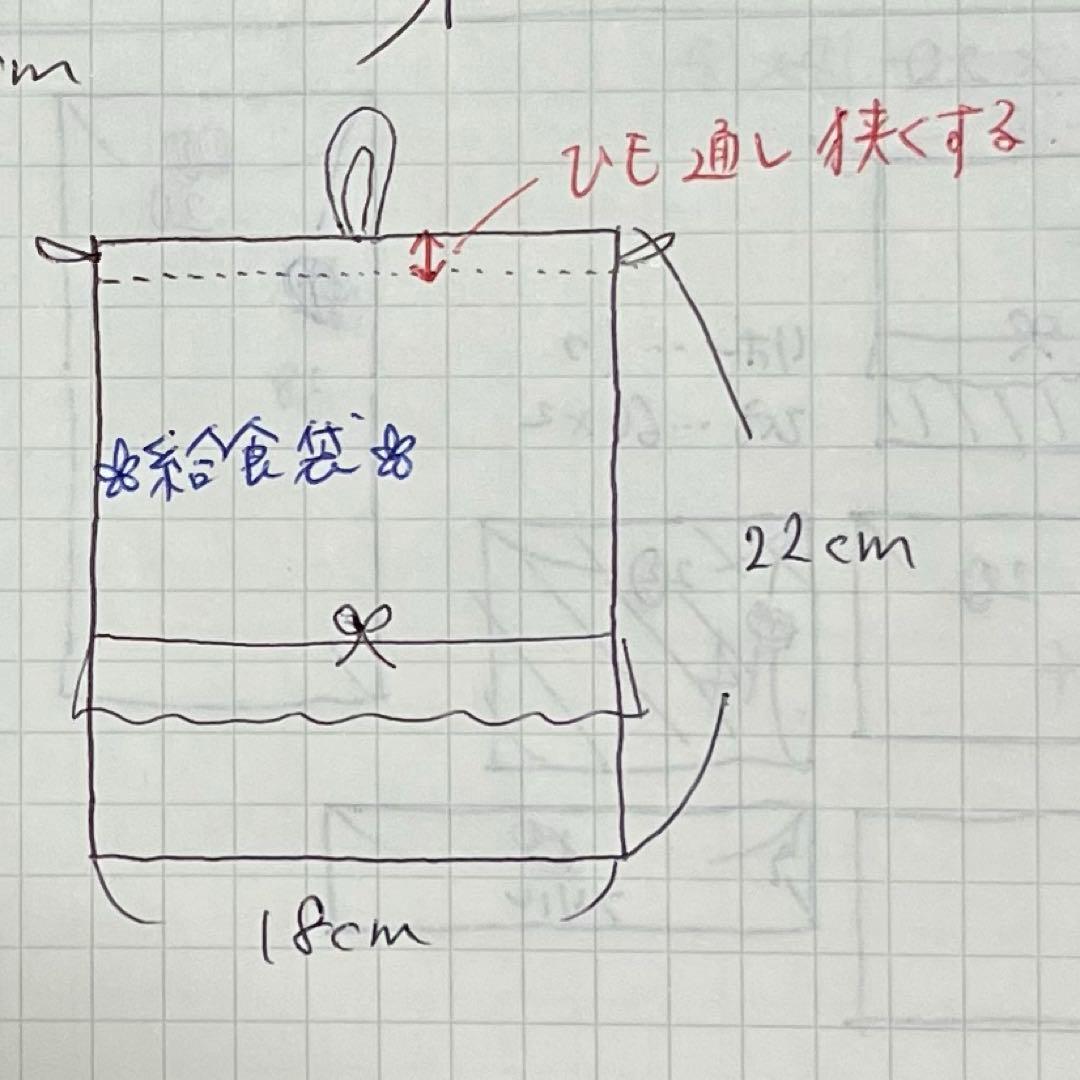 m
ひも通し狭くする
給食袋
22cm
18cm